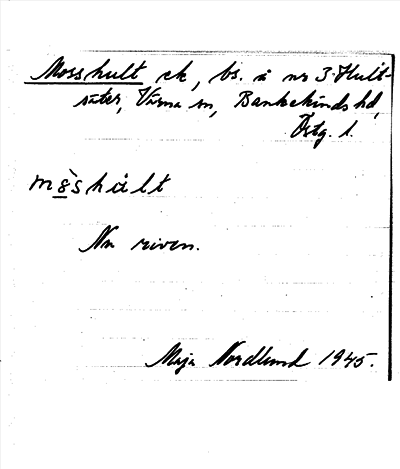 Mosshult ck, bs. å nr 3 Hult-
säter, Värna sn, Bankekinds hd,
Östg. l.
mòshu̇lt
Nu riven.
Maja Nordlund 1945.